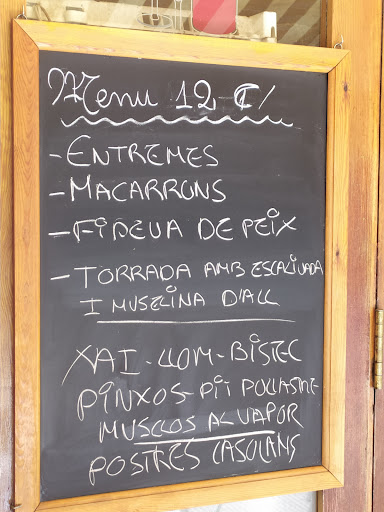 Menu 12 €/
- ENTREMES
- MACARRONS
- FIDEUA DE PEIX
- TORRADA AMB ESCALIVADA
I MUSELINA D'ALL
XAI - LLOM - BISTEC
PINXOS - PIT POLLASTRE
MUSCLOS AL VAPOR
POSTRES CASOLANS